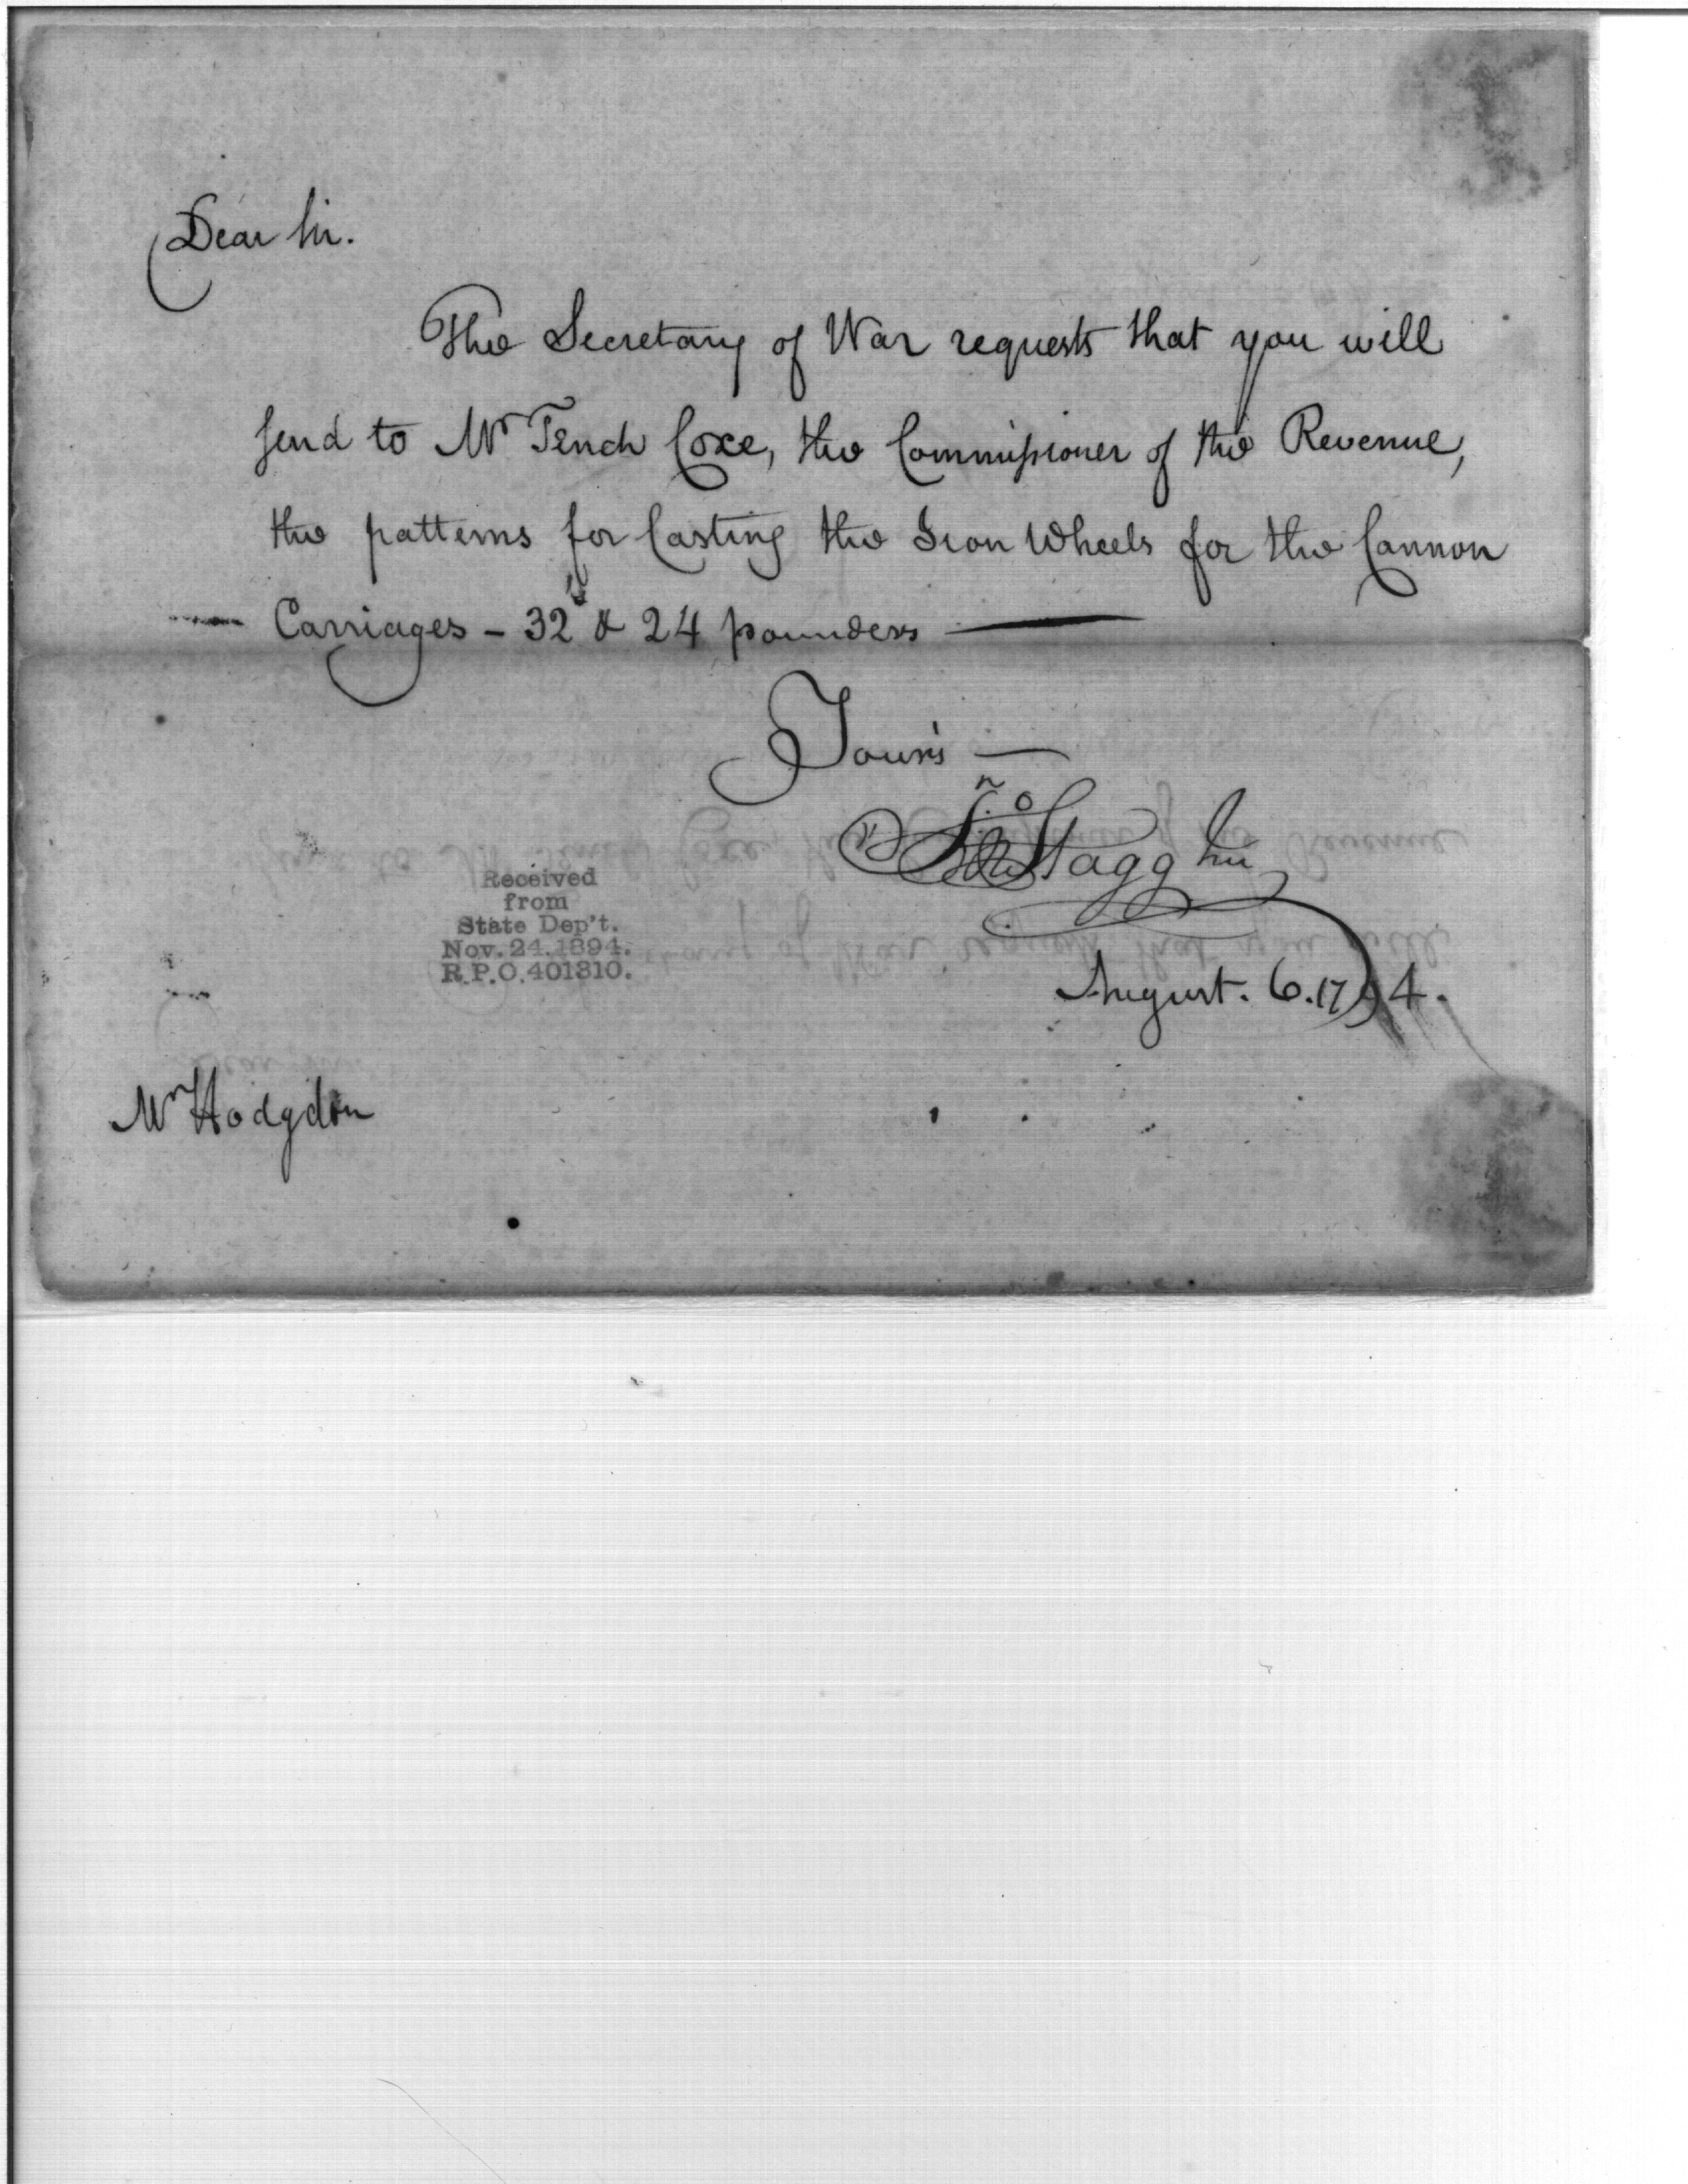 Dear Sir.
The Secretary of War requests that you will
send to Mr Tench Coxe, the Commissioner of the Revenue,
the patterns for Casting the Iron Wheels for the Cannon
Carriages - 32s & 24 pounders —
Your's —
Jno Stagg Jur
August. 6. 1794.
Received
from
State Dep't.
Nov. 24. 1894.
R.P.O. 401310.
Mr Hodgdon